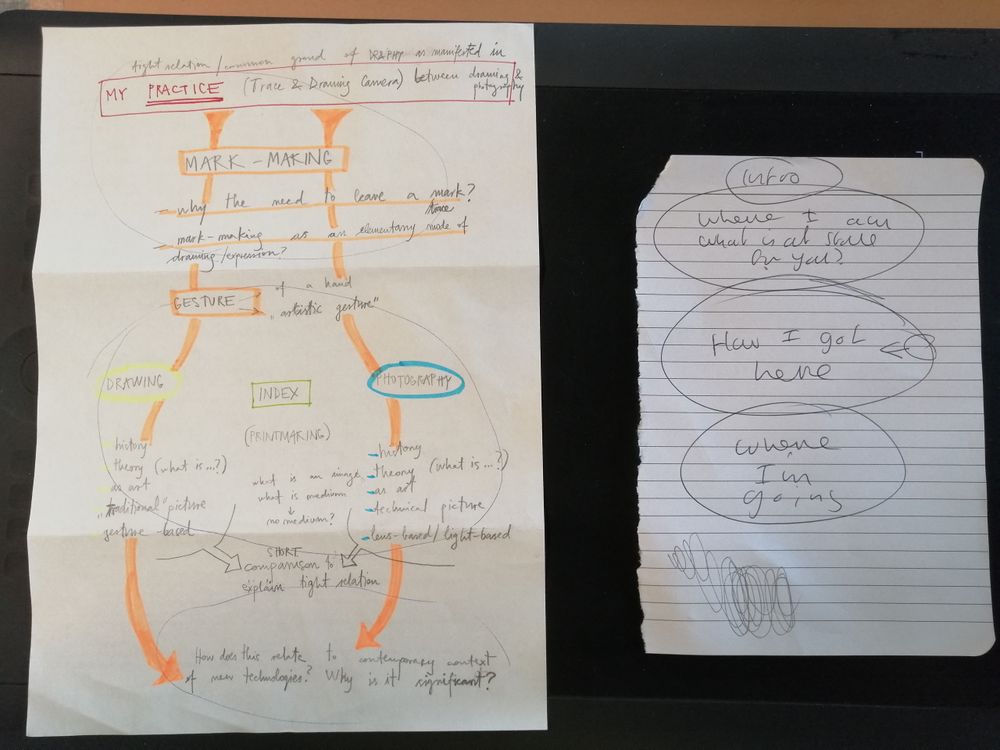 tight relation / common ground of DR&PHY as manifested in
MY PRACTICE (Trace & Drawing Camera) between drawing &
photography
MARK-MAKING
- why the need to leave a mark?
trace
- mark-making as an elementary mode of
drawing/expression?
GESTURE
of a hand
"artistic gesture"
DRAWING
INDEX
PHOTOGRAPHY
(PRINTMAKING)
history
theory (what is...?)
as art
"traditional" picture
gesture-based
what is an image
what is medium
no medium?
- history
- theory (what is...?)
- as art
- technical picture
- lens-based/light-based
SHORT
comparison to
explain tight relation
How does this relate to contemporary context
of new technologies? Why is it significant?
Intro
where I am
what is at stake
for you?
How I got
here
where
I'm
going